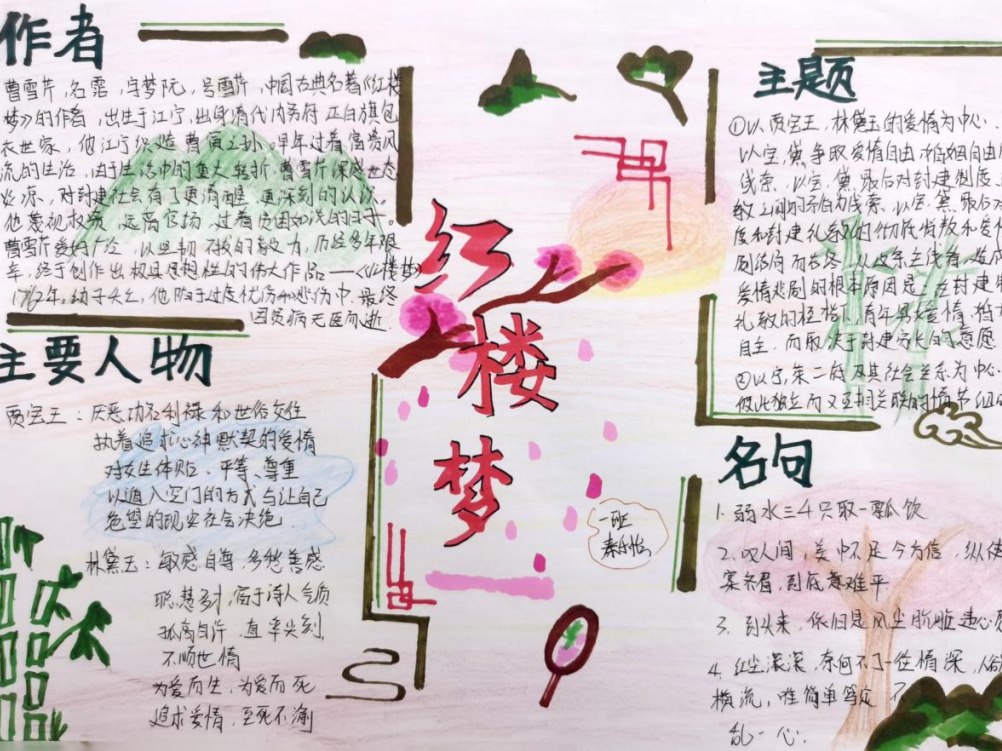 作者
曹雪芹,名霑,字梦阮,号雪芹,中国古典名著《红楼
梦》的作者,出生于江宁,出身清代内务府正白旗包
衣世家,他江宁织造曹寅之孙.早年过着富贵风
流的生活.由于生活中的重大转折,曹雪芹深感世态
炎凉,对封建社会有了更清醒、更深刻的认识.
他蔑视权贵,远离官场,过着贫困如洗的日子.
曹雪芹爱好广泛,以坚韧不拔的毅力,历经多年艰
辛,终于创作出极具思想性的伟大作品——《红楼梦》
1762年,幼子夭亡,他陷于过度忧伤和悲伤中.最终
因贫病无医而逝.
主要人物
贾宝玉:厌恶功名利禄和世俗交往
执着追求心神默契的爱情
对女生体贴、平等、尊重
以遁入空门的方式与让自己
绝望的现实社会决绝
林黛玉:敏感自尊,多愁善感
聪慧多才,富于诗人气质
孤高自许,直率尖刻,
不顺世情
为爱而生,为爱而死
追求爱情,至死不渝
红楼梦
一班
秦乐怡
主题
①以贾宝玉,林黛玉的爱情为中心.
以宝、黛争取爱情自由,婚姻自由
线索.以宝、黛最后对封建制度
教之间的矛盾为线索.以宝、黛最后
度和封建礼教的彻底背叛和爱情
剧结局而告终.从这条主线看,造成
爱情悲剧的根本原因是:在封建
礼教的桎梏下,青年男女爱情,婚
自主,而取决于封建家长的意愿
②以宁、荣二府及其社会关系为中心
彼此独立而又互相关联的情节组
名句
1.弱水三千只取一瓢饮
2.叹人间,美中不足今方信,纵使
案齐眉,到底意难平
3.到头来,依旧是风尘肮脏违心愿
4.红尘滚滚,奈何不了一位情深,人欲
横流,唯简单笃定
乱一心.